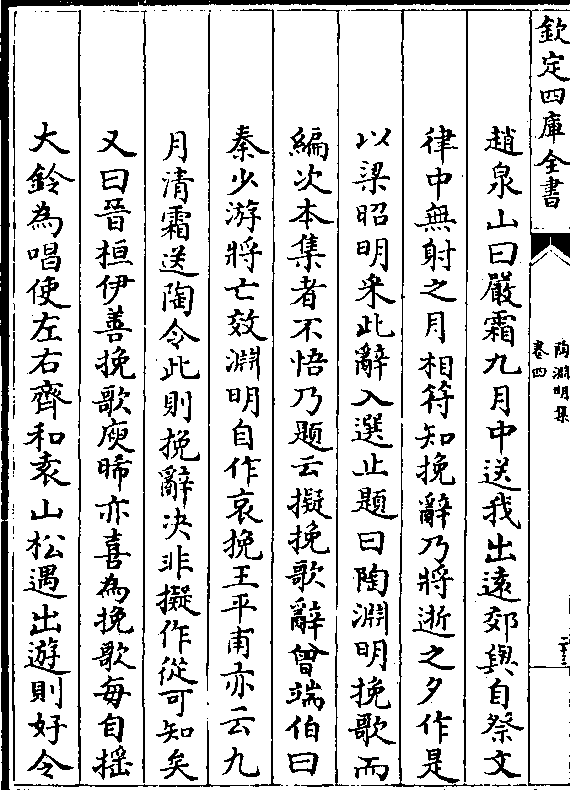 欽定四庫全書
陶淵明集
卷四
趙泉山曰嚴霜九月中送我出遠郊與自祭文
律中無射之月相符知挽辭乃將逝之夕作是
以梁昭明采此辭入選止題曰陶淵明挽歌而
編次本集者不悟乃題云擬挽歌辭曾端伯曰
秦少游將亡效淵明自作哀挽王平甫亦云九
月清霜送陶令此則挽辭决非擬作從可知矣
又曰晉桓伊善挽歌庾晞亦喜為挽歌每自摇
大鈴為唱使左右齊和袁山松遇出遊則好令